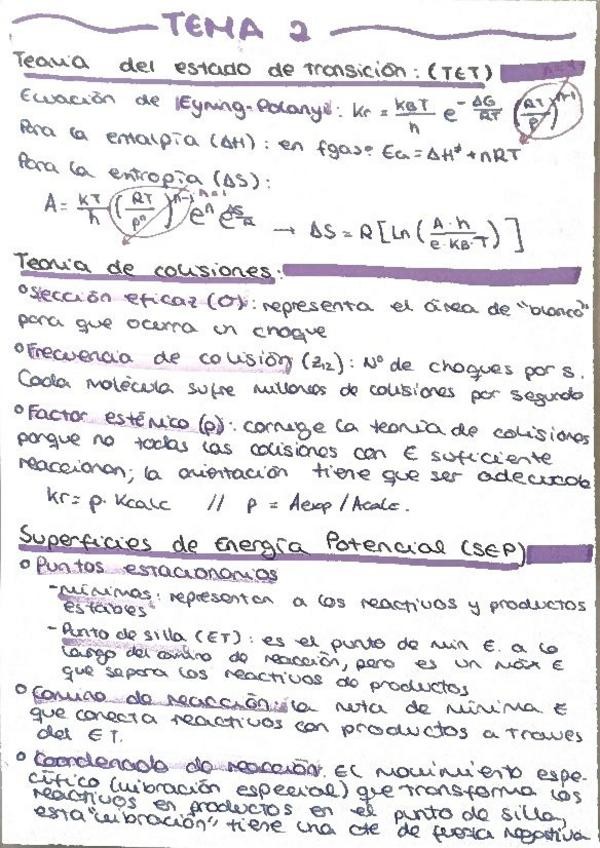 TEMA 2
Teoría del estado de transición: (TET)
Ecuación de Eyring-Polanyi: Kr = KBT/h e^(-ΔG/RT) (RT/P)^(n-1)
Para la entalpía (ΔH): en fgas: Ea = ΔH≠ + nRT
Para la entropía (ΔS):
A = KT/h (RT/pⁿ)^(n-1) eⁿ e^(ΔS/R) → ΔS = R [Ln (A·h / e·KB·T)]
Teoría de colisiones:
° Sección eficaz (σ): representa el área de "blanco"
para que ocurra un choque
° Frecuencia de colisión (z₁₂): Nº de choques por s.
Cada molécula sufre millones de colisiones por segundo
° Factor estérico (p): corrige la teoría de colisiones
porque no todas las colisiones con E suficiente
reaccionan; la orientación tiene que ser adecuada
kr = p · Kcalc // p = Aexp / Acalc.
Superficies de Energía Potencial (SEP)
° Puntos estacionarios
- Mínimos: representan a los reactivos y productos
estables
- Punto de silla (ET): es el punto de min E. a lo
largo del camino de reacción, pero es un máx E
que separa los reactivos de productos
° Camino de reacción: la ruta de mínima E
que conecta reactivos con productos a traves
del ET.
° Coordenada de reacción. El movimiento espe-
cífico (vibración especial) que transforma los
reactivos en productos en el punto de silla,
esta "vibración" tiene una cte de fuerza negativa